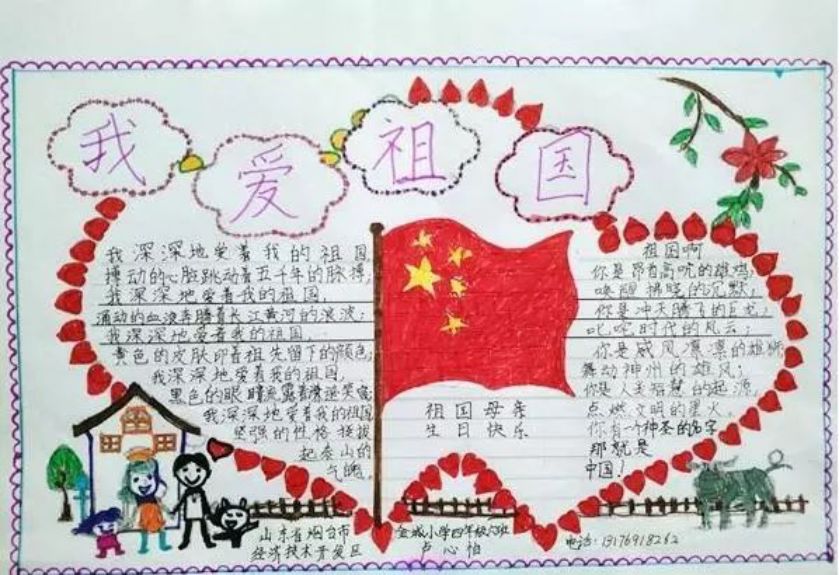 我爱祖国
我深深地爱着我的祖国,
搏动的心脏跳动着五千年的脉搏,
我深深地爱着我的祖国,
涌动的血液奔腾着长江黄河的浪波;
我深深地爱着我的祖国,
黄色的皮肤印着祖先留下的颜色;
我深深地爱着我的祖国,
黑色的眼睛流露着谦逊笑窝
我深深地爱着我的祖国
坚强的性格挺拔
起泰山的
气魄。
祖国母亲
生日快乐
祖国啊
你是昂首高吭的雄鸡,
唤醒拂晓的沉默,
你是冲天腾飞的巨龙,
叱咤时代的风云;
你是威风凛凛的雄狮
舞动神州的雄风;
你是人类智慧的起源,
点燃文明的星火。
你有一个神圣的名字
那就是
中国!
山东省烟台市
经济技术开发区
金城小学四年级六班
卢心怡
电话:13176918262